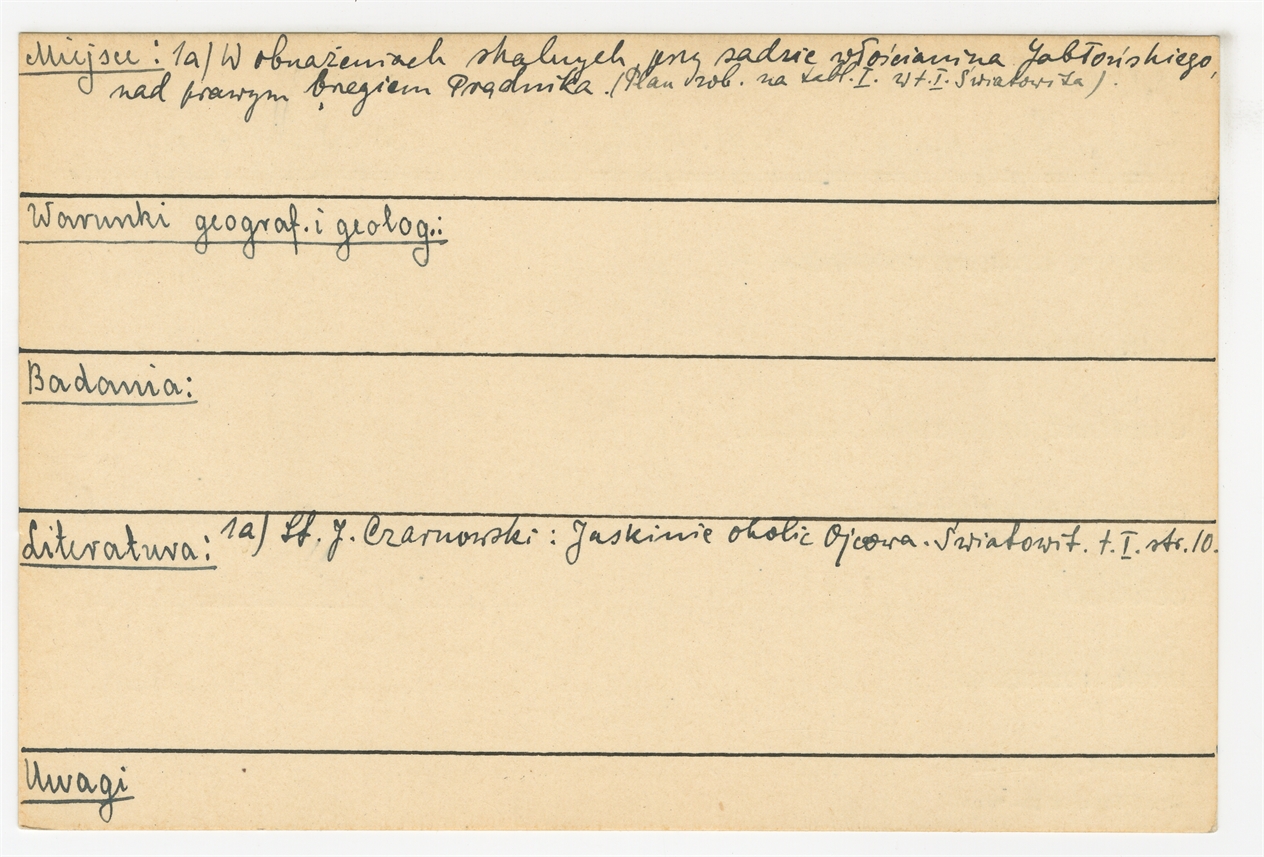 Miejsce: 1a) W obnażeniach skalnych, przy sadzie włościanina Jabłońskiego,
nad prawym bregiem Prądnika. (Plan zob. na tabl. I. w t. I. Światowita).
Warunki geograf. i geolog.:
Badania:
Literatura: 1a) St. J. Czarnowski: Jaskinie okolic Ojcowa. Światowit. t. I. str. 10.
Uwagi